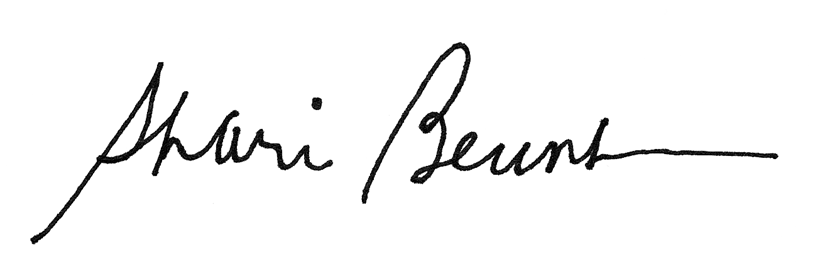 Shari Beunt